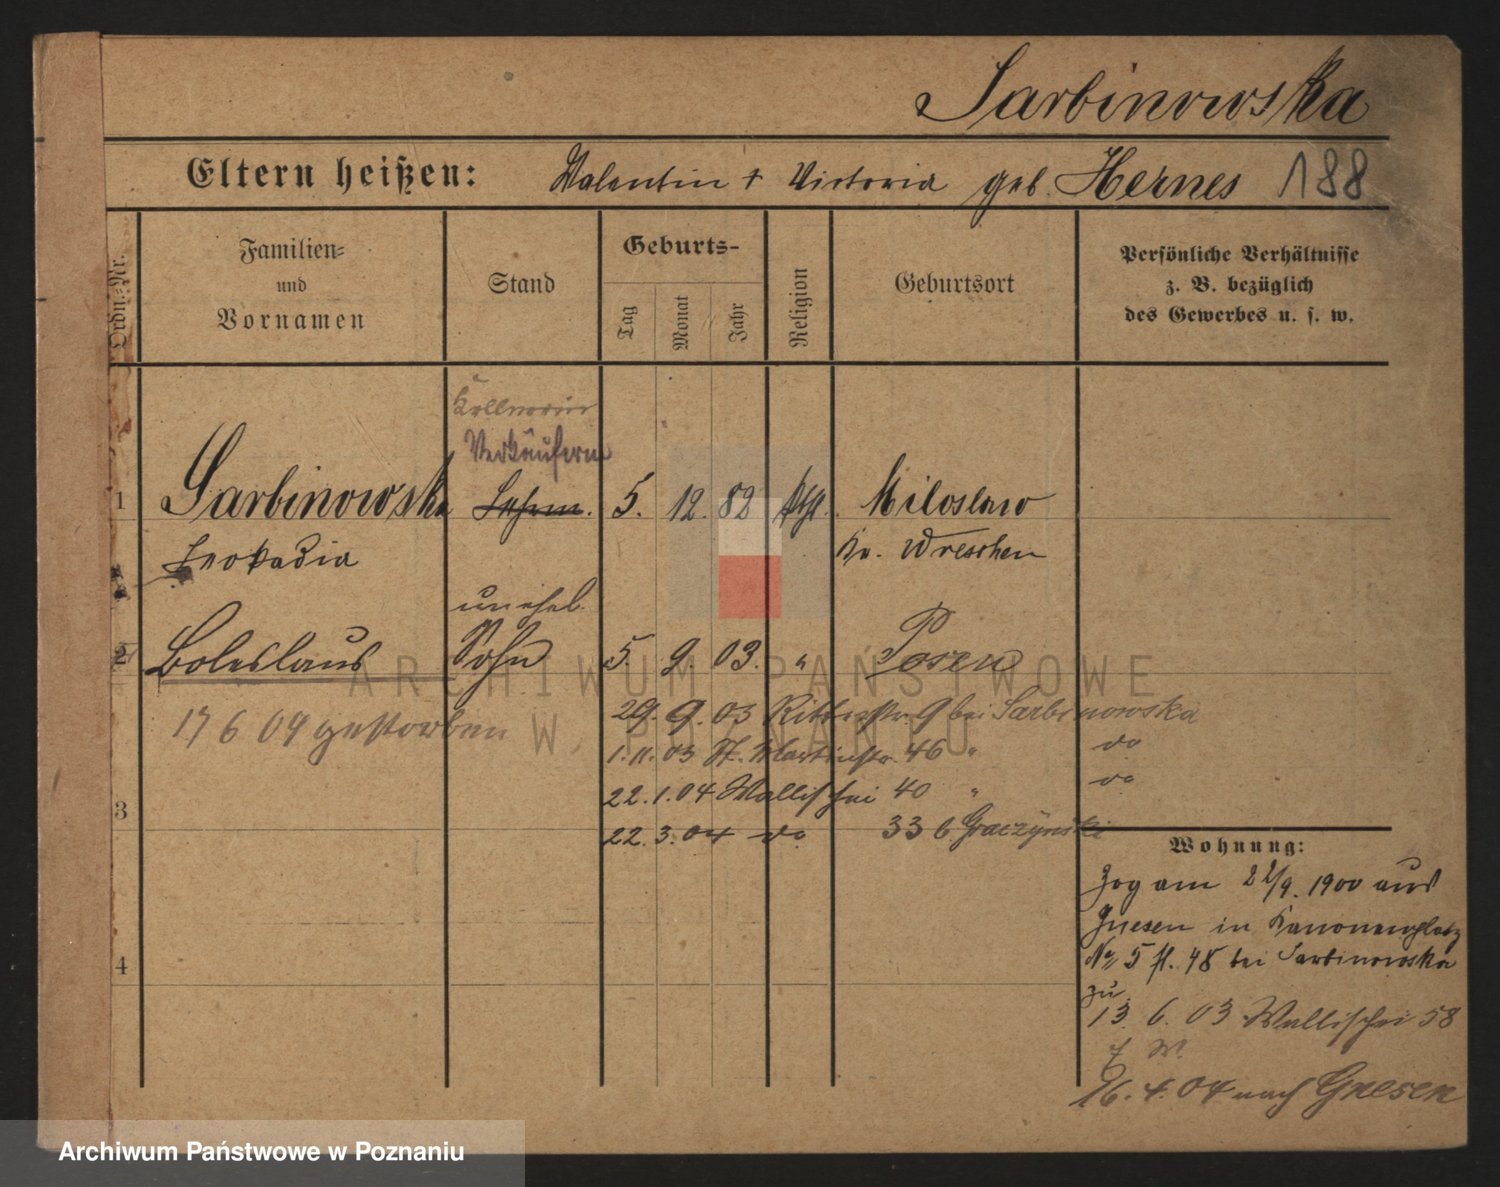 Sarbinowska
Eltern heißen: Valentin + Victoria geb. Hernes 188
Ordn.-Nr.
Familien-
und
Vornamen
Stand
Geburts-
Tag
Monat
Jahr
Religion
Geburtsort
Persönliche Verhältnisse
z. B. bezüglich
des Gewerbes u. s. w.
Kellnerin
Verkäuferin
1 Sarbinowska 5. 12. 82 kthl. Miloslaw
Leokadia Kr. Wreschen
2
unehel.
2 Boleslaus Sohn 5. 9. 03. " Posen
ARCHIWUM PAŃSTWOWE
W POZNANIU
17 6 04 gestorben
29. 9. 03 Ritterstr. 9 bei Sarbinowska
1. 11. 03 St. Martinstr. 46 " do
22. 1. 04 Wallischei 40 " do
3
22. 3. 04 do 33 b. Graczynski
Wohnung:
Zog am 22/9. 1900 aus
Gnesen in Kanonenplatz
No 5 fl. 48 bei Sarbinowska
zu
4
13. 6. 03 Wallischei 58
z W.
16. 4. 04 nach Gnesen
Archiwum Państwowe w Poznaniu